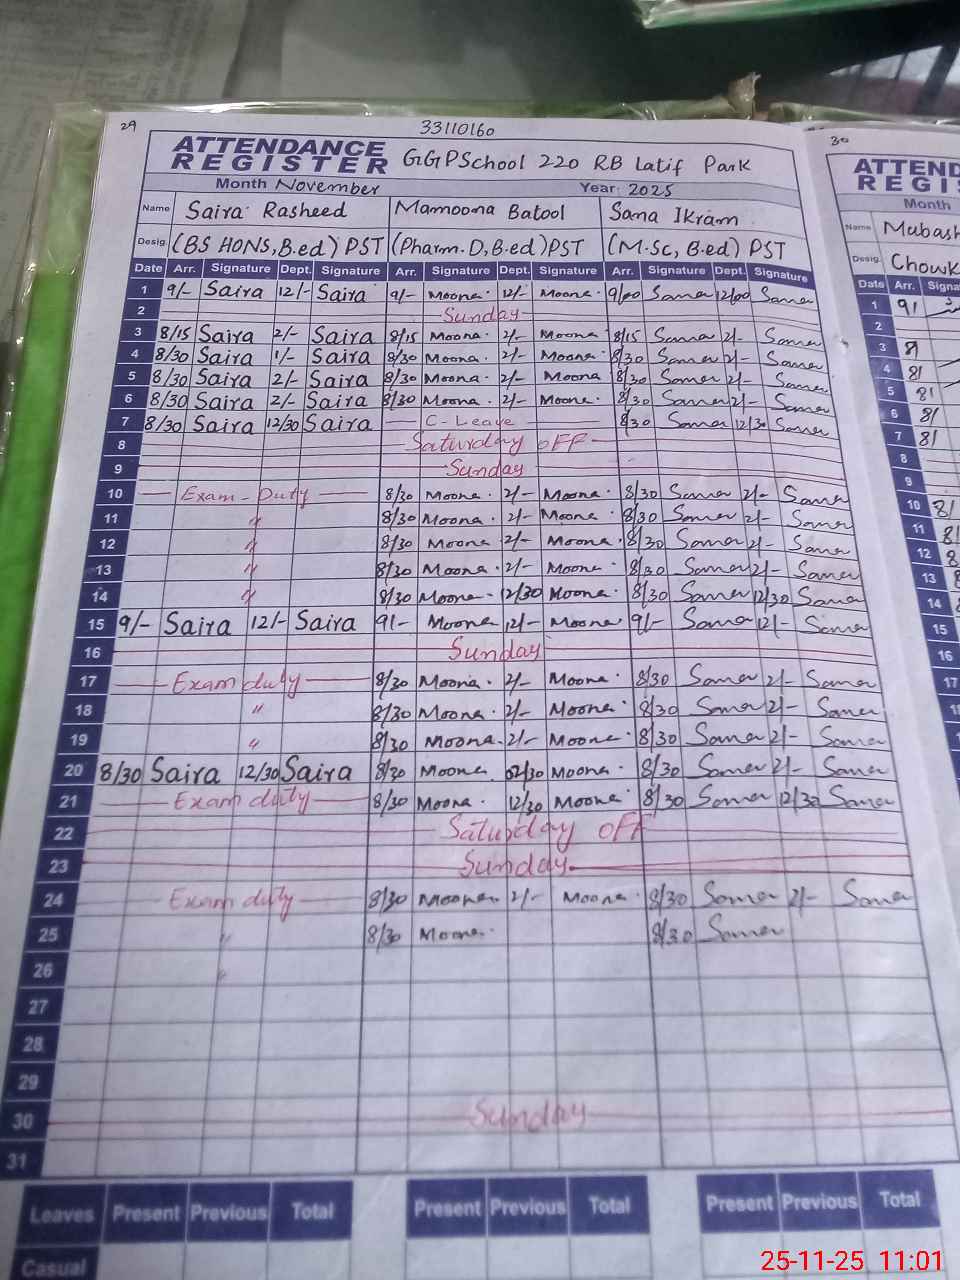 29 33110160 30
ATTENDANCE REGISTER GGPSchool 220 RB Latif Park
Month November Year: 2025
Name Saira Rasheed Mamoona Batool Sana Ikram
Desig. (BS HONS, B.ed) PST (Pharm.D, B.ed) PST (M.Sc, B.ed) PST
Date Arr. Signature Dept. Signature Arr. Signature Dept. Signature Arr. Signature Dept. Signature
1 9/- Saira 12/- Saira 9/- Moona. 12/- Moona. 9/00 Sana 12/00 Sana
2 Sunday
3 8/15 Saira 2/- Saira 8/15 Moona. 2/- Moona. 8/15 Sana 2/- Sana
4 8/30 Saira 1/- Saira 8/30 Moona. 2/- Moona. 8/30 Sana 2/- Sana
5 8/30 Saira 2/- Saira 8/30 Moona. 2/- Moona 8/30 Sana 2/- Sana
6 8/30 Saira 2/- Saira 8/30 Moona. 2/- Moona. 8/30 Sana 2/- Sana
7 8/30 Saira 12/30 Saira C-Leave 8/30 Sana 12/30 Sana
8 Saturday OFF
9 Sunday
10 Exam-Duty 8/30 Moona. 2/- Moona. 8/30 Sana 2/- Sana
11 " 8/30 Moona. 2/- Moona. 8/30 Sana 2/- Sana
12 " 8/30 Moona. 2/- Moona. 8/30 Sana 2/- Sana
13 " 8/30 Moona. 2/- Moona. 8/30 Sana 2/- Sana
14 " 8/30 Moona. 12/30 Moona. 8/30 Sana 12/30 Sana
15 9/- Saira 12/- Saira 9/- Moona 12/- Moona 9/- Sana 12/- Sana
16 Sunday
17 Exam duty 8/30 Moona. 2/- Moona. 8/30 Sana 2/- Sana
18 " 8/30 Moona. 2/- Moona. 8/30 Sana 2/- Sana
19 " 8/30 Moona. 2/- Moona. 8/30 Sana 2/- Sana
20 8/30 Saira 12/30 Saira 8/30 Moona. 02/30 Moona. 8/30 Sana 2/- Sana
21 Exam duty 8/30 Moona. 12/30 Moona. 8/30 Sana 12/30 Sana
22 Saturday OFF
23 Sunday
24 Exam duty 8/30 Moona. 2/- Moona. 8/30 Sana 2/- Sana
25 " 8/30 Moona. 8/30 Sana
26 "
27
28
29
30 Sunday
31
Leaves Present Previous Total Present Previous Total Present Previous Total
Casual
ATTEND
REGIS
Month
Name Mubash
Desig. Chowk
Date Arr. Signa
1 9/
2
3 8/
4 8/
5 8/
6 8/
7 8/
8
9
10 8/
11 8/
12 8
13
14
15
16
17
25-11-25 11:01